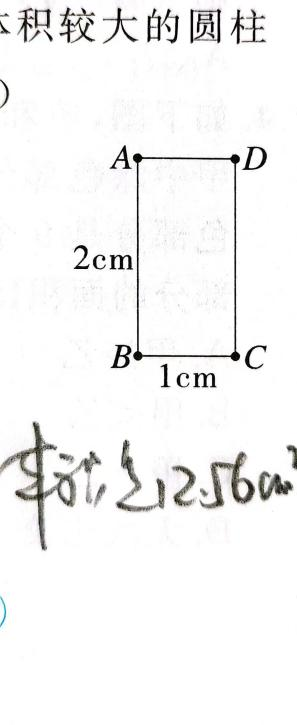 积较大的圆柱
)
A D
2cm
B C
1cm
12.56cm³
)